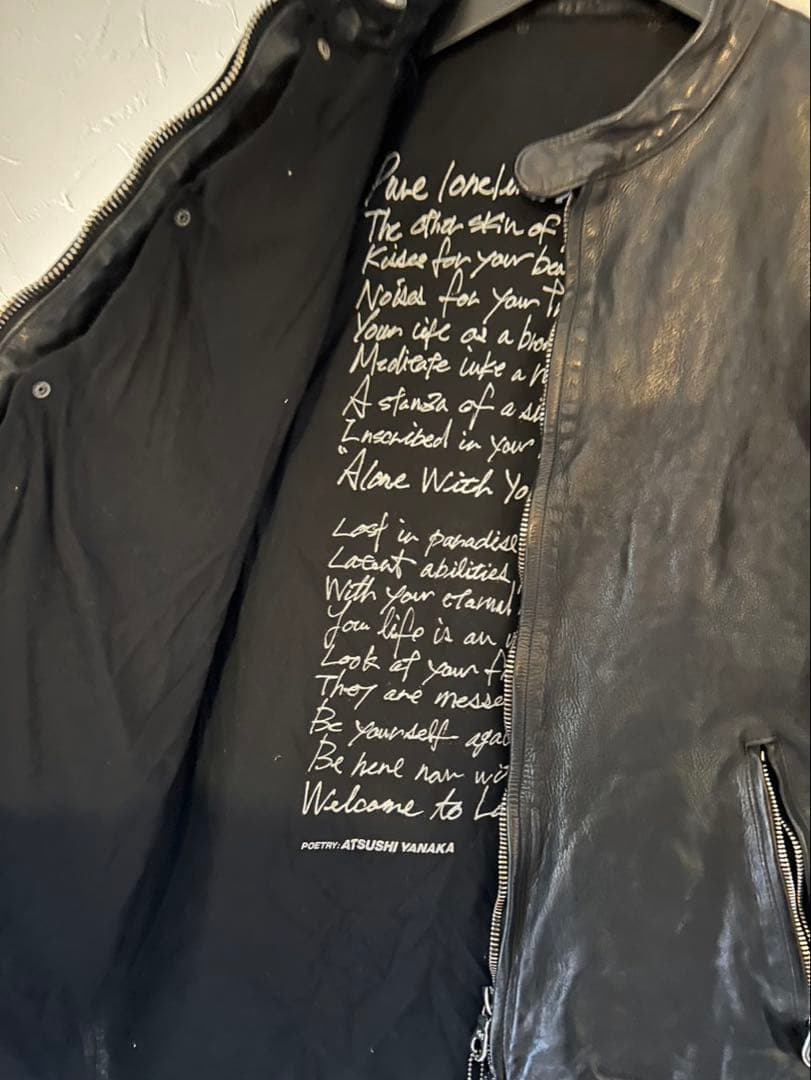 Pure
The other skin of
Kisses for your
Noises for your
Your life as a
Meditate like a
A stanza of a
Inscribed in your
"Alone With
Lost in paradise
Latent abilities
With your eternal
Your life is an
Look at your
They are
Be yourself
Be here now
Welcome to
POETRY: ATSUSHI YANAKA